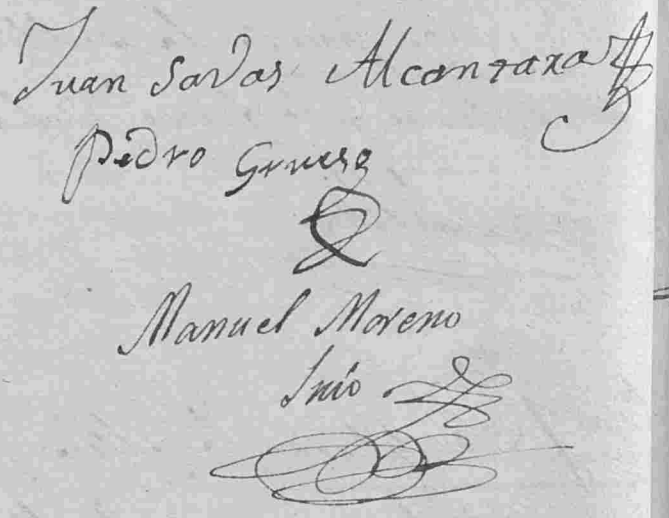 Juan Savas Alcantara
Pedro Grueso
Manuel Moreno
Srio